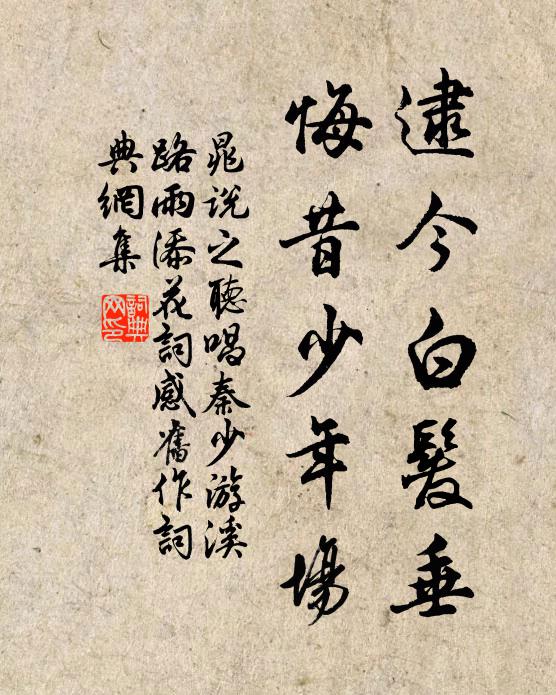 逮今白髮垂
悔昔少年場
晁說之聽唱秦少游溪
路雨添花詞感舊作詞
典網集
詞典
网印